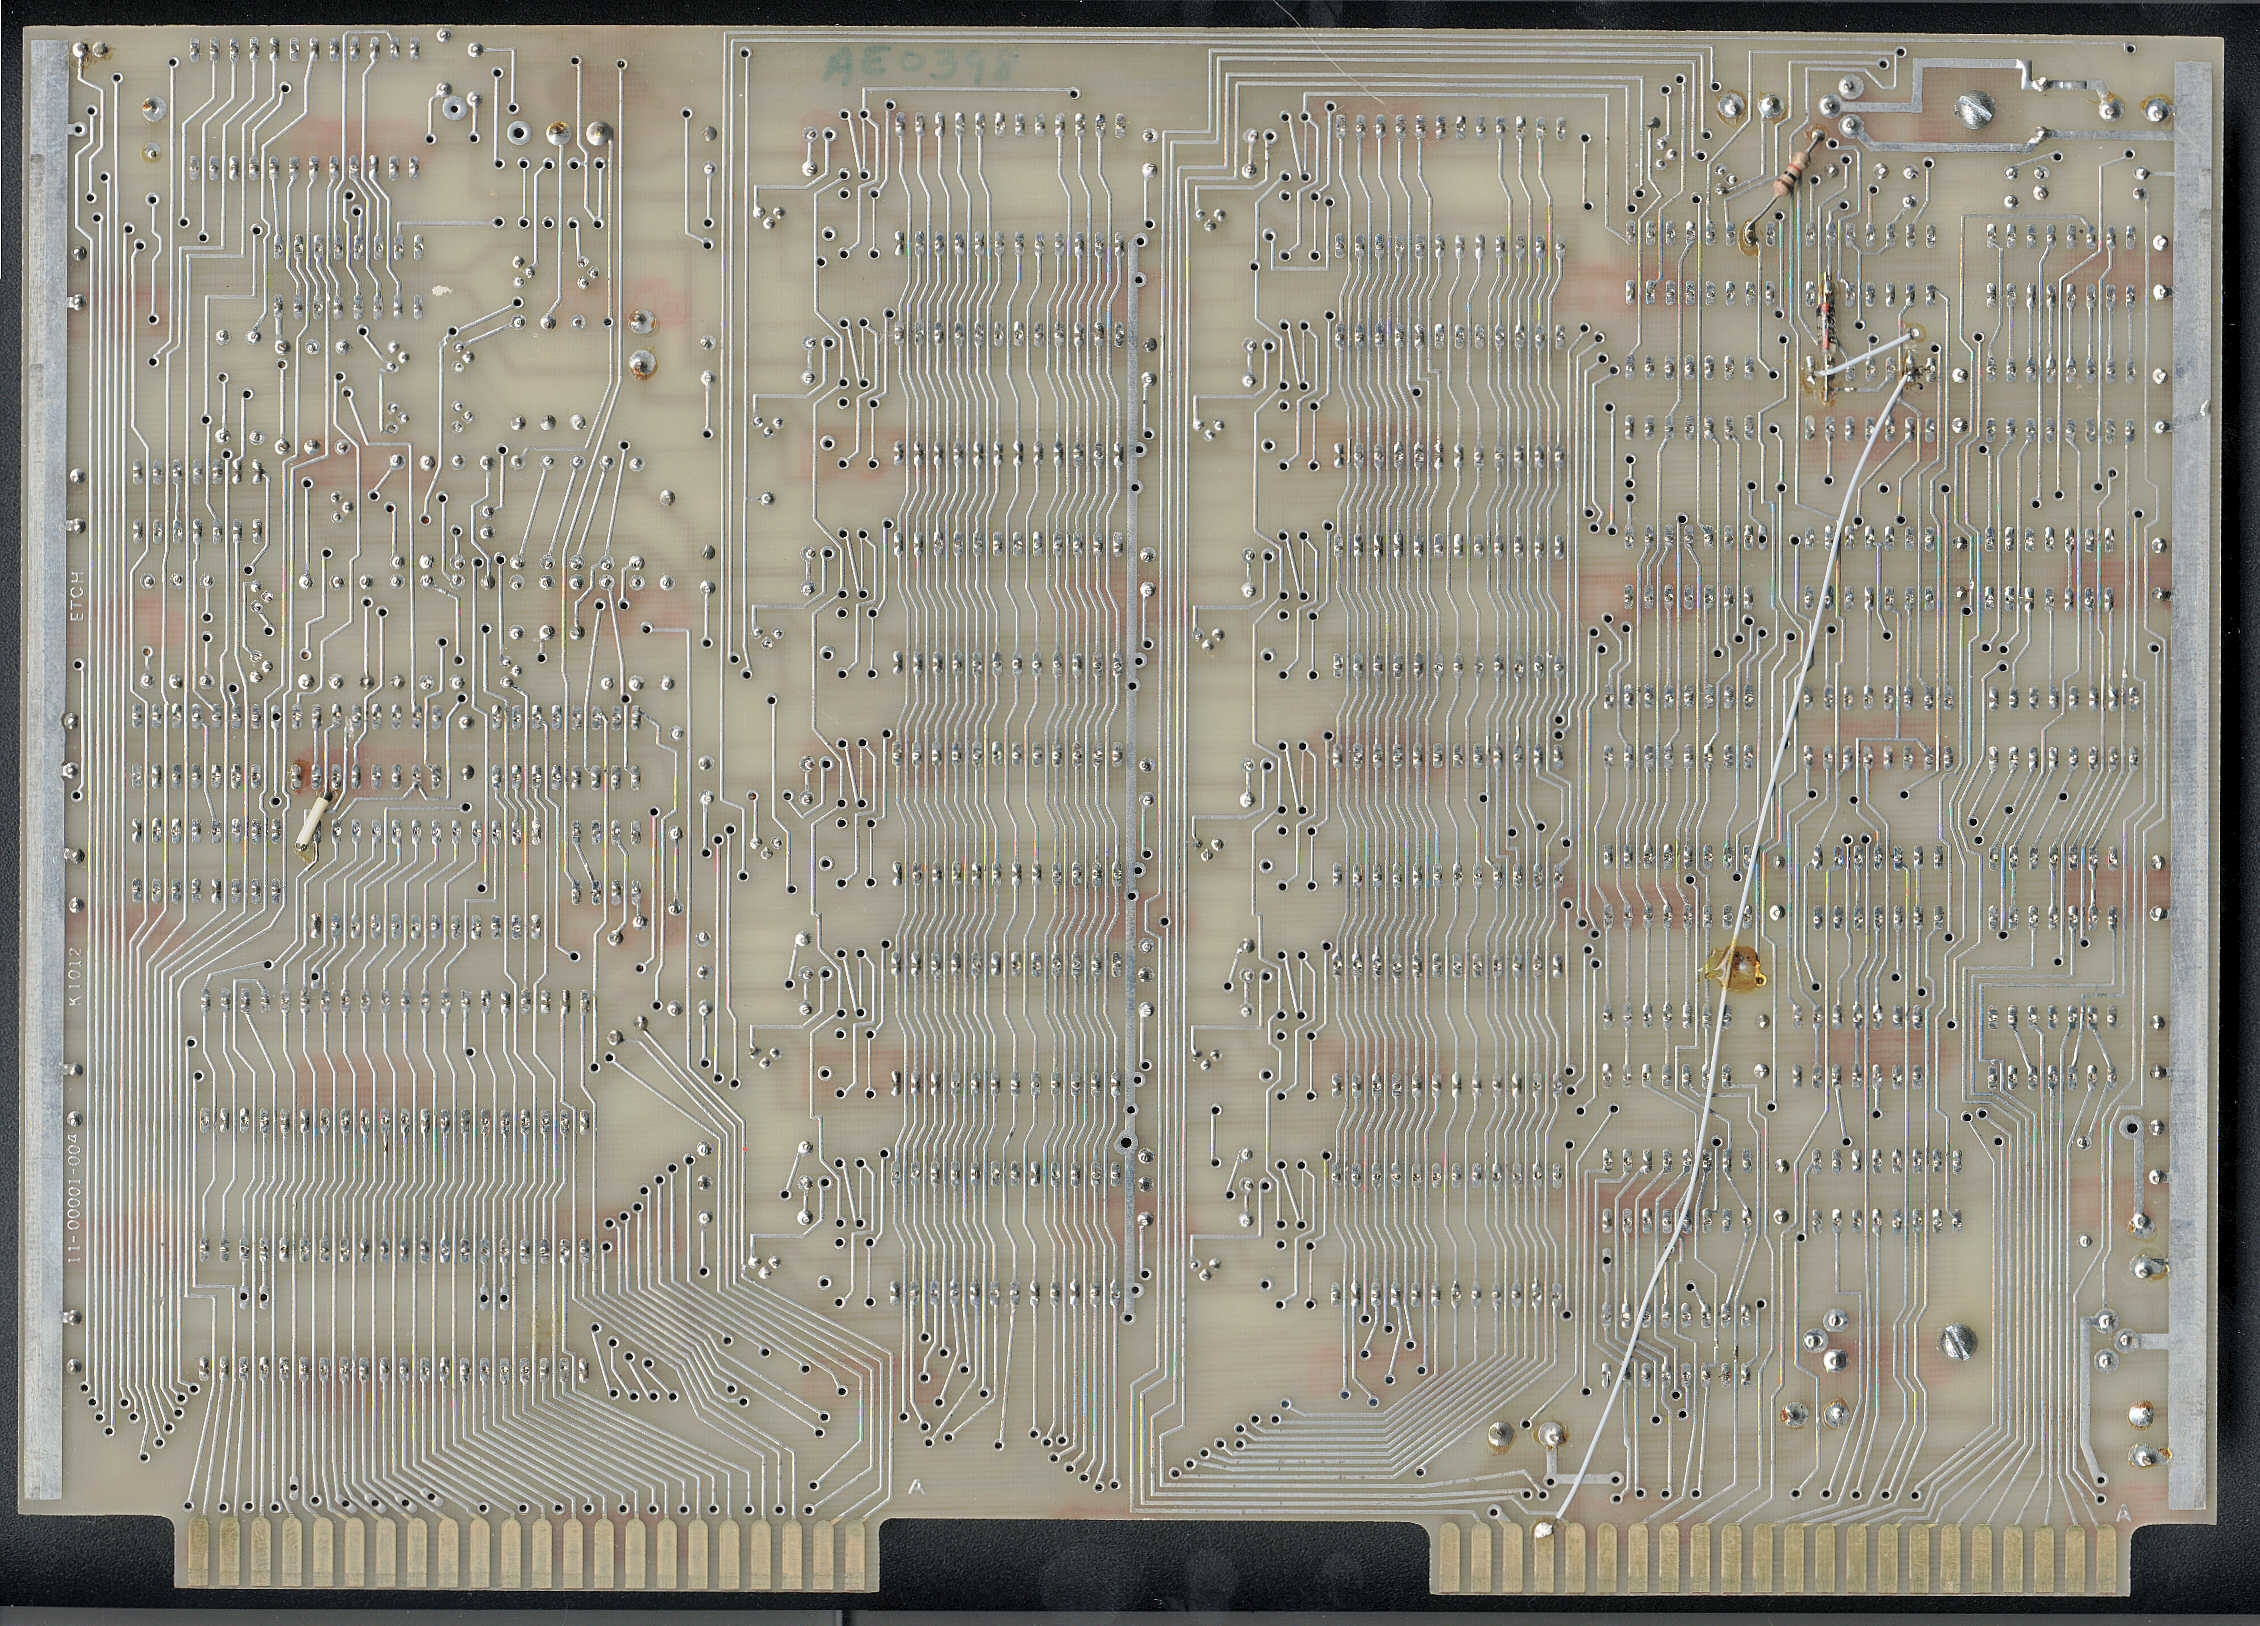 AE0398
ETCH
K1012
11-00001-004
A
A